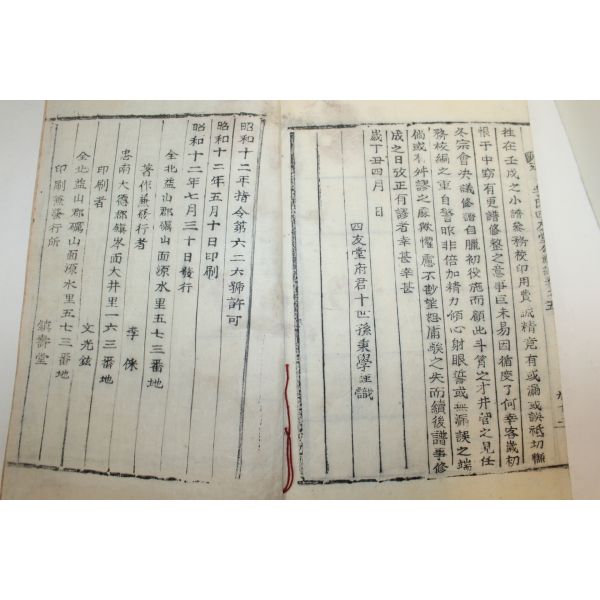 往在壬戌之小譜參務校印用費誠精竟有或漏或誤祗切慨
恨于中窃有更譜修整之意事巨未易因循度了何幸客歲初
冬宗會決議修譜自臘初役施而顧此斗筲之才井管之見任
務校編之重自警昨非倍加精力傾心射眼誓或無漏誤之端
倘或有舛謬之處欺懼慮不尠望恕庸騃之失而續後譜事修
成之日攷正有諺者幸甚幸甚
歲丁丑四月 日
四友堂府君十世孫秉學謹識
昭和十二年指令第六二六號許可
昭和十二年五月十日印刷
昭和十二年七月三十日發行
全北益山郡礪山面源水里五七三番地
著作兼發行者 李 洙
忠南大德郡鎮岑面大井里一六三番地
印刷者 文光鉉
全北益山郡礪山面源水里五七三番地
印刷兼發行所 鎮壽堂